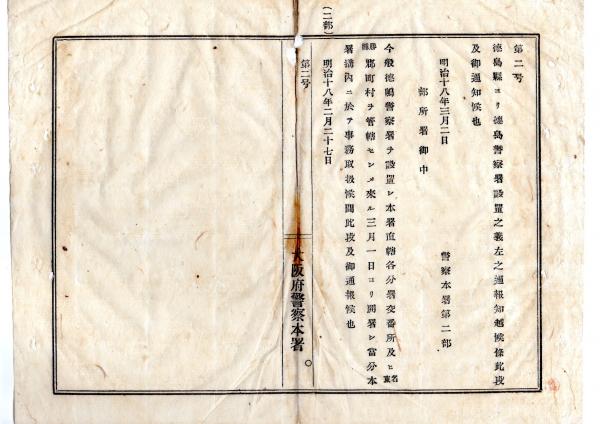 第二号
徳島縣ヨリ徳島警察署設置之義左之通報知越候條此段
及御通知候也
明治十八年三月二日
警察本署第二部
部所署御中
今般徳嶋警察署ヲ設置シ本署直轄各分署交番所及ヒ名東
郡町村ヲ管轄セシメ來ル三月一日ヨリ開署シ當分本
署構内ニ於テ事務取扱候間此段及御通報候也
明治十八年二月二十七日
第二号
(二部)
大阪府警察本署